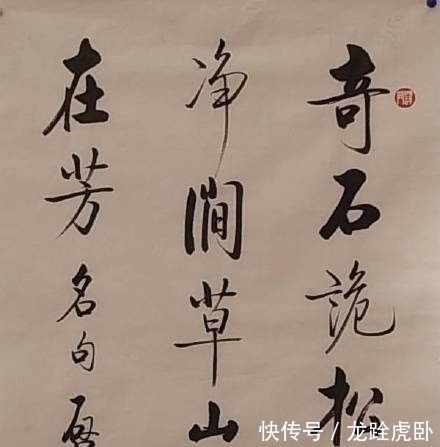 奇石詭松
净澗草山
在芳名句
快传号/龙跧虎卧